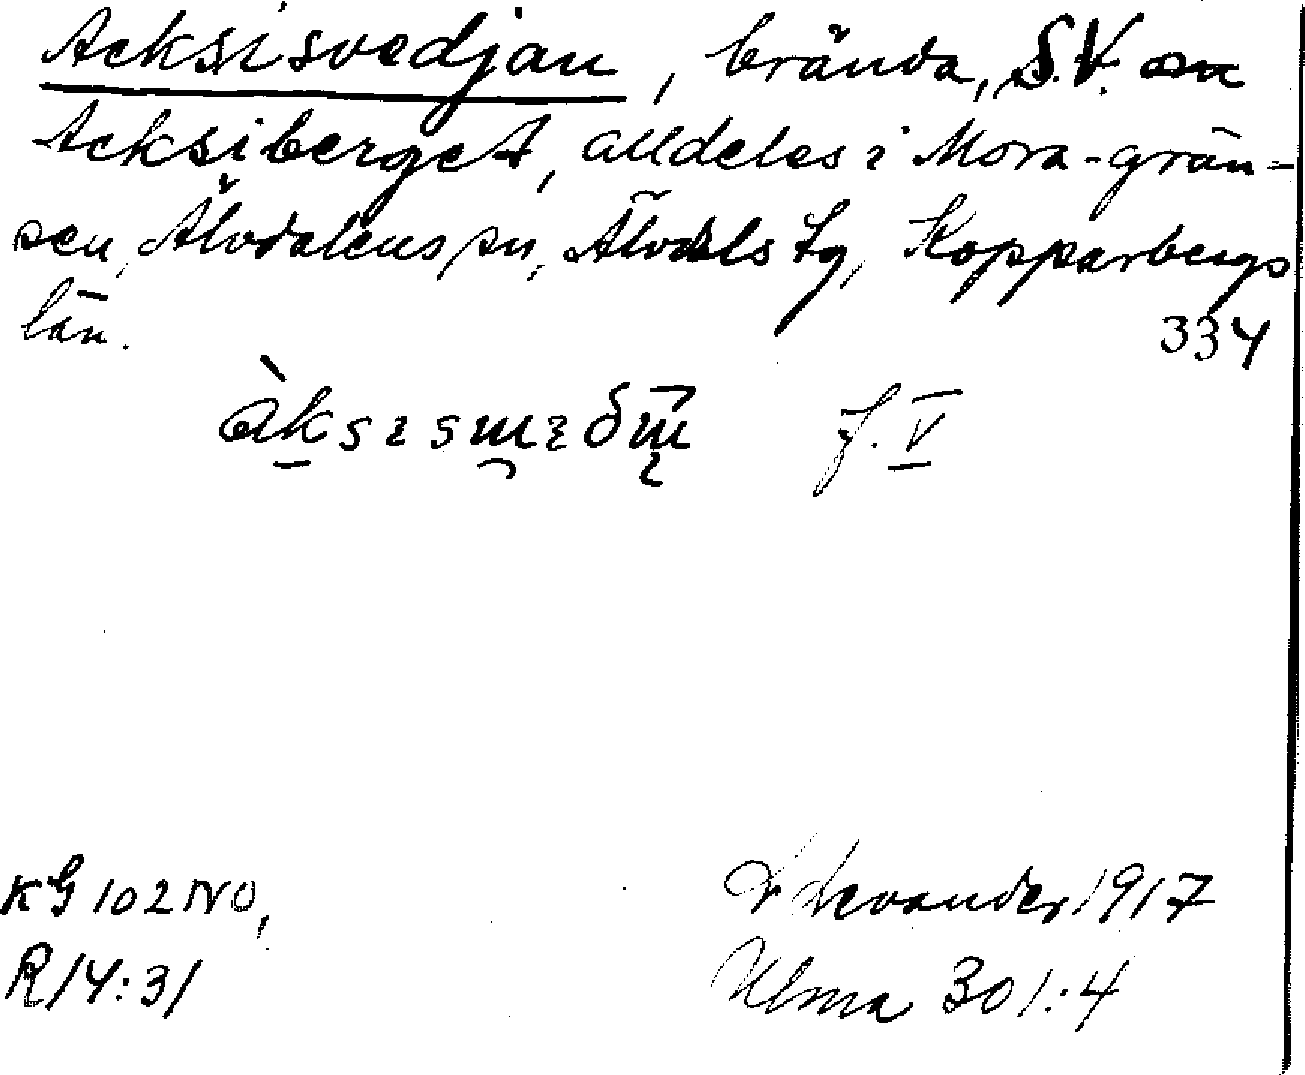 Acksisvedjan, brända, S.V. om
Acksiberget, alldeles i Mora-grän-
sen, Älvdalens sn, Älvdals tg, Kopparbergs
län.
334
f. V
KG 102 NO,
R14:31
L Levander 1917
Ulma 301:4